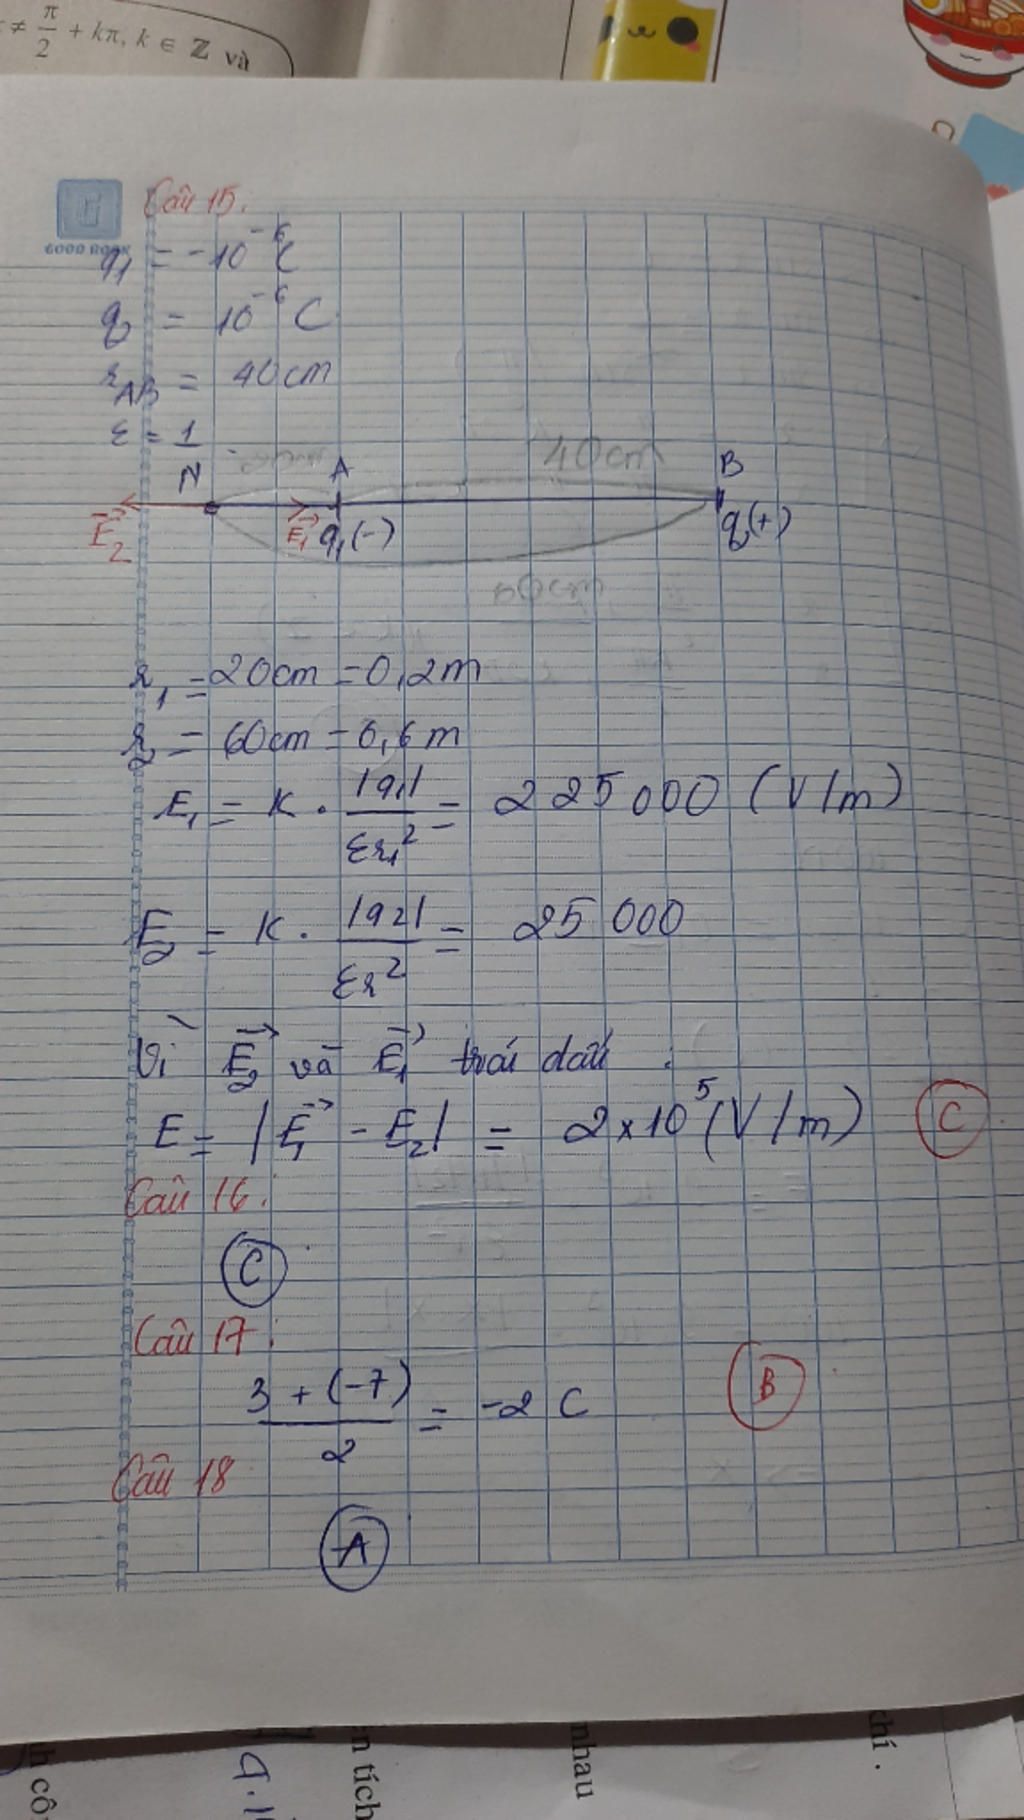 ≠ π/2 + kπ, k ∈ ℤ và
Câu 15:
GOOD BOOK
q₁ = -10⁻⁶ C
q₂ = 10⁻⁶ C
r_AB = 40cm
ε = 1
N A 40cm B
E₂ E₁ q₁(-) q₂(+)
r₁ = 20cm = 0,2m
r₂ = 60cm = 0,6m
E₁ = K . |q₁| / εr₁² = 225000 (V/m)
E₂ = K . |q2| / εr² = 25 000
Vì E₂ và E₁ trái dấu
E = |E₁ - E₂| = 2x10⁵ (V/m) C
Câu 16:
C
Câu 17:
3 + (-7) / 2 = -2 C B
Câu 18
A
tích
nhau
khí.